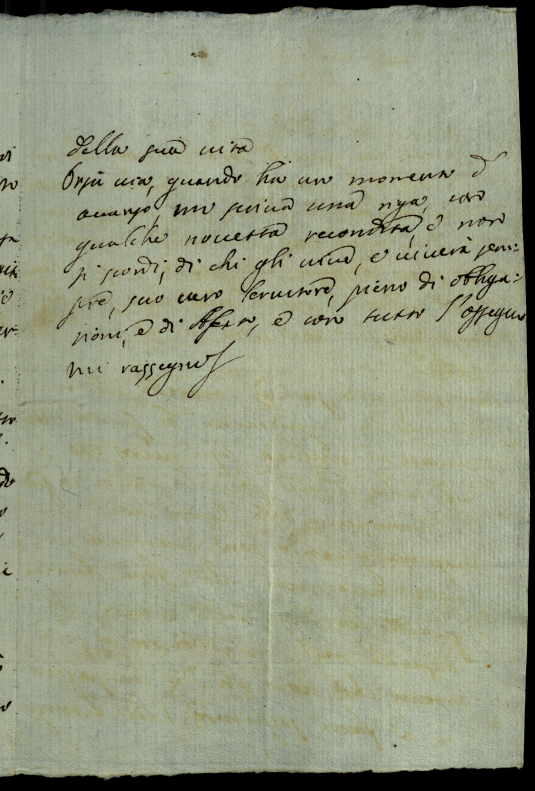 della sua vita
Orsù via, quando ha un momento d'
avanzo, mi scriva una riga, con
qualche novella recondita, e non
si scordi, di chi gli vive, e viverà sem:
pre, suo vero servitore, pieno di obliga:
zioni, e di affetto, e con tutto l'ossequio
mi rassegno